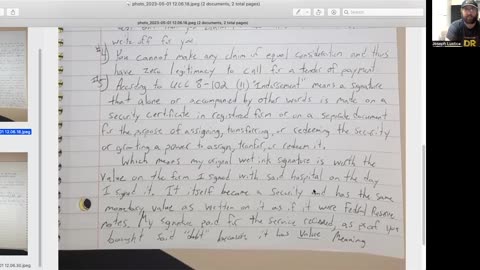 photo_2023-05-01 12.08.18.jpeg (2 documents, 2 total pages)
photo_2023-05-01 12.08.18.jpeg (2 documents, 2 total pages)
Joseph Lustica
DR
write off for you
#4) You cannot make any claim of equal consideration and thus
have zero legitimacy to call for a tender of payment
#5) According to UCC 8-102 (11) "Indorsement" means a signature
that alone or accompanied by other words is made on a
security certificate in registered form or on a separate document
for the purpose of assigning, transferring, or redeeming the security
or granting a power to assign, transfer, or redeem it.
Which means my original wet ink signature is worth the
value on the form I signed with said hospital on the day
I signed it. It itself became a security and has the same
monetary value as written on it as if it were Federal Reserve
notes. My signature paid for the service received, as proof you
bought said "debt" because it has value meaning